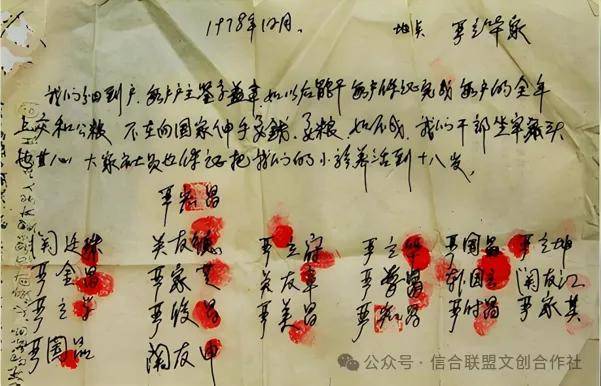 1978年12月。 地点 严立华家
我们分田到户，每户户主签字盖章，如以后能干每户保证完成每户的全年
上交和公粮 不在向国家伸手要钱要粮，如不成，我们干部坐牢杀头
也甘心 大家社员也保证把我们的小孩养活到十八岁。
严宏昌
关廷珠 关友德 严立符 严立华 严国昌 严立坤
严金昌 严家芝 关友章 严学昌 韩国云 关友江
严立学 严俊昌 严美昌 严宏昌 严付昌 严家其
严国品 关友申
公众号·信合联盟文创合作社